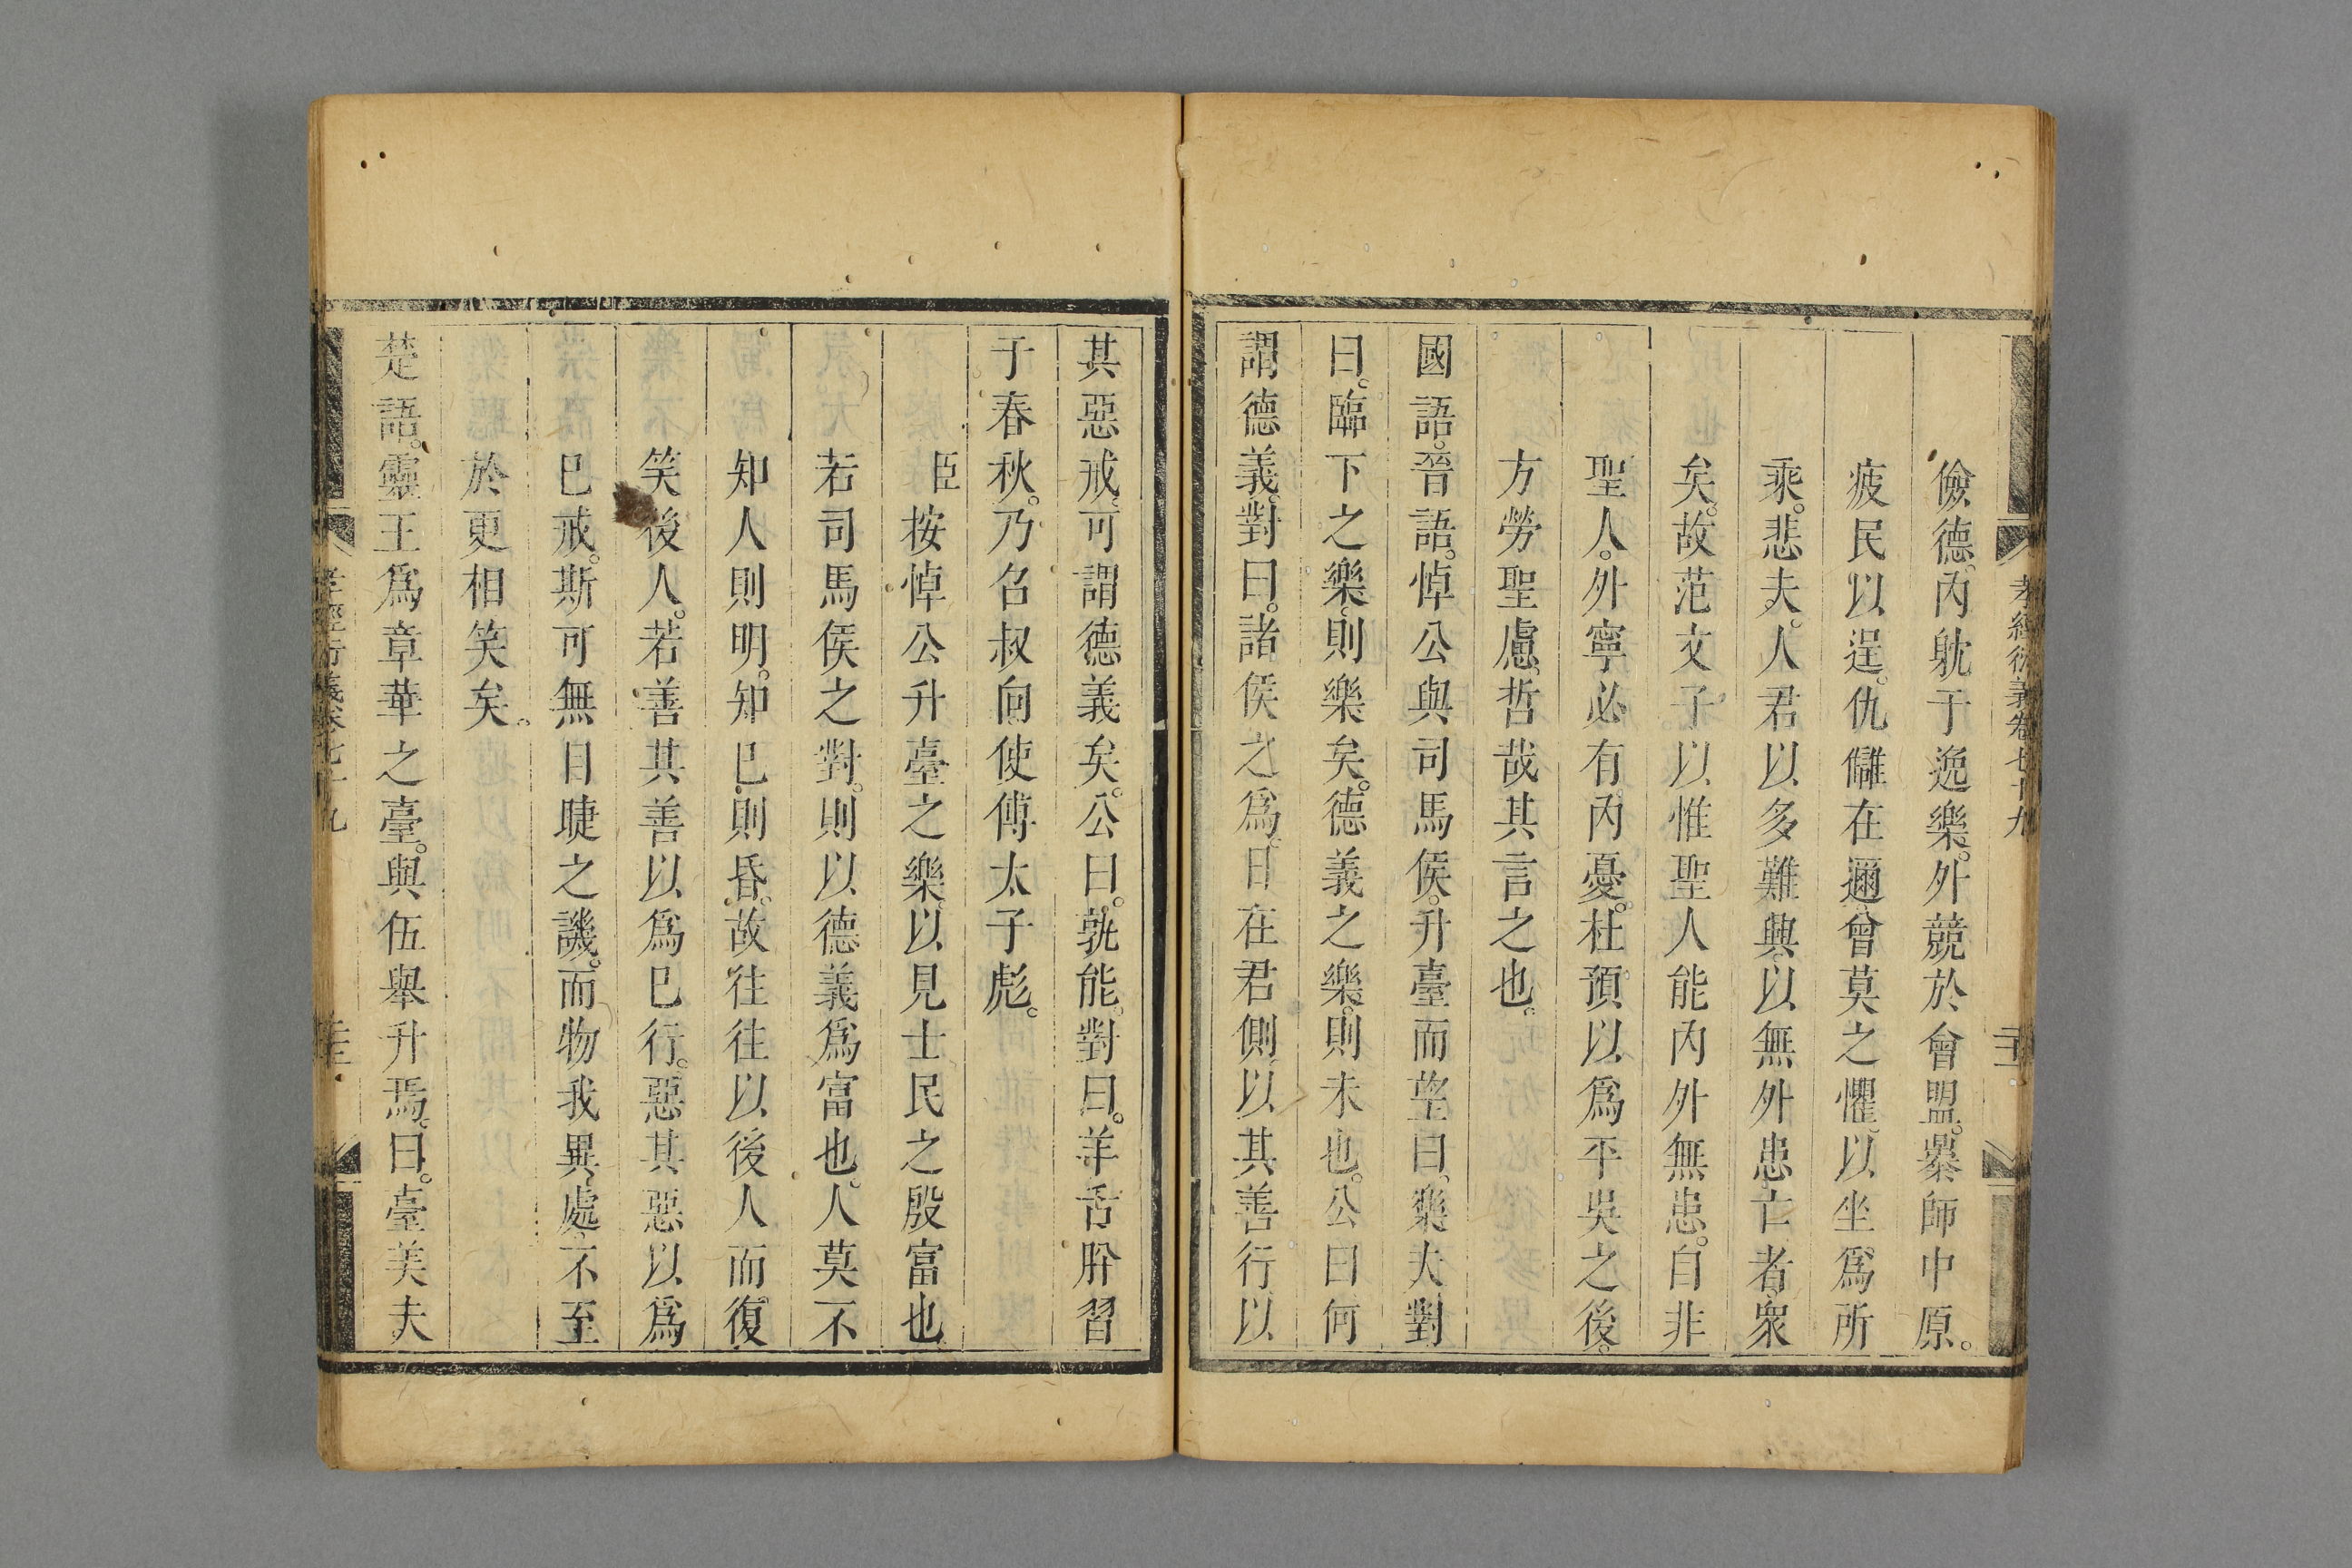 孝經衍義卷七十九
儉德。內躭于逸樂。外競於會盟。暴師中原。
疲民以逞。仇讎在邇。曾莫之懼。以坐爲所
乘。悲夫。人君以多難興。以無外患亡者。衆
矣。故范文子以惟聖人能內外無患。自非
聖人。外寧必有內憂。杜預以爲平吳之後。
方勞聖慮。哲哉其言之也。
國語。晉語。悼公與司馬侯。升臺而望曰。樂夫。對
曰。臨下之樂。則樂矣。德義之樂。則未也。公曰。何
謂德義。對曰。諸侯之爲。日在君側。以其善行。以
其惡戒。可謂德義矣。公曰。孰能。對曰。羊舌肸習
于春秋。乃召叔向使傅太子彪。
臣按悼公升臺之樂。以見士民之殷富也。
若司馬侯之對。則以德義爲富也。人莫不
知人則明。知已則昏。故往往以後人而復
笑後人。若善其善以爲已行。惡其惡以爲
已戒。斯可無目睫之譏。而物我異處。不至
於更相笑矣。
楚語。靈王爲章華之臺。與伍舉升焉。曰。臺美夫